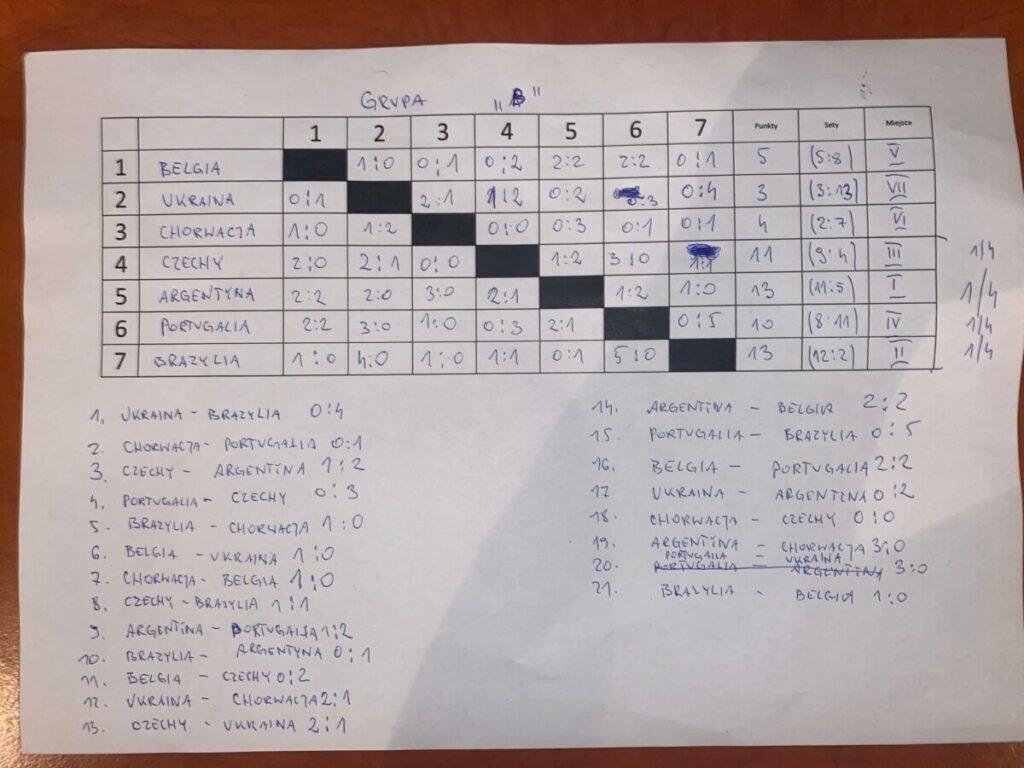 GRUPA „B"
1 2 3 4 5 6 7 Punkty Sety Miejsce
1 BELGIA 1:0 0:1 0:2 2:2 2:2 0:1 5 (5:8) V
2 UKRAINA 0:1 2:1 1:2 0:2 0:3 0:4 3 (3:13) VII
3 CHORWACJA 1:0 1:2 0:0 0:3 0:1 0:1 4 (2:7) VI
4 CZECHY 2:0 2:1 0:0 1:2 3:0 1:1 11 (9:4) III 1/4
5 ARGENTYNA 2:2 2:0 3:0 2:1 1:2 1:0 13 (11:5) I 1/4
6 PORTUGALIA 2:2 3:0 1:0 0:3 2:1 0:5 10 (8:11) IV 1/4
7 BRAZYLIA 1:0 4:0 1:0 1:1 0:1 5:0 13 (12:2) II 1/4
1. UKRAINA - BRAZYLIA 0:4
2. CHORWACJA - PORTUGALIA 0:1
3. CZECHY - ARGENTINA 1:2
4. PORTUGALIA - CZECHY 0:3
5. BRAZYLIA - CHORWACJA 1:0
6. BELGIA - UKRAINA 1:0
7. CHORWACJA - BELGIA 1:0
8. CZECHY - BRAZYLIA 1:1
9. ARGENTINA - PORTUGALIA 1:2
10. BRAZYLIA - ARGENTYNA 0:1
11. BELGIA - CZECHY 0:2
12. UKRAINA - CHORWACJA 2:1
13. CZECHY - UKRAINA 2:1
14. ARGENTINA - BELGIA 2:2
15. PORTUGALIA - BRAZYLIA 0:5
16. BELGIA - PORTUGALIA 2:2
17 UKRAINA - ARGENTINA 0:2
18. CHORWACJA - CZECHY 0:0
19. ARGENTYNA - CHORWACJA 3:0
PORTUGALIA - UKRAINA
20. PORTUGALIA - ARGENTINA 3:0
21. BRAZYLIA - BELGIA 1:0